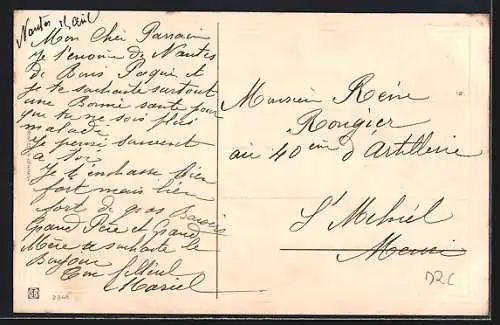 Nantes Avril
Mon Cher Parrain
je t'envoie de Nantes
de Bons Paques et
je te souhaite surtout
une Bonne santé pour
que tu ne sois plus
malade
Je pense souvent
a toi
Je t'embrasse bien
fort mais bien
fort de gros Baisers
Grand Père et Grand
Mère te souhaite le
Bonjour
Ton filleul
Marcel
2348
Monsieur Réné
Rougier
au 40ème d'Artillerie
St Mihiel
Meuse
D2C